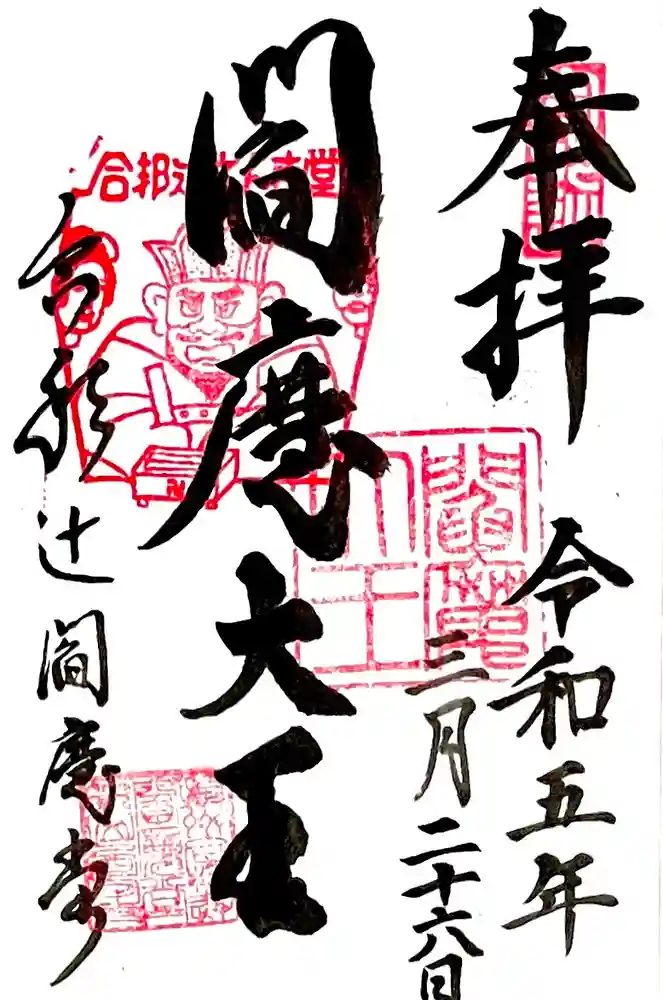 奉拝
令和五年
三月二十六日
閻魔大王
合邦辻閻魔堂
閻魔
大王